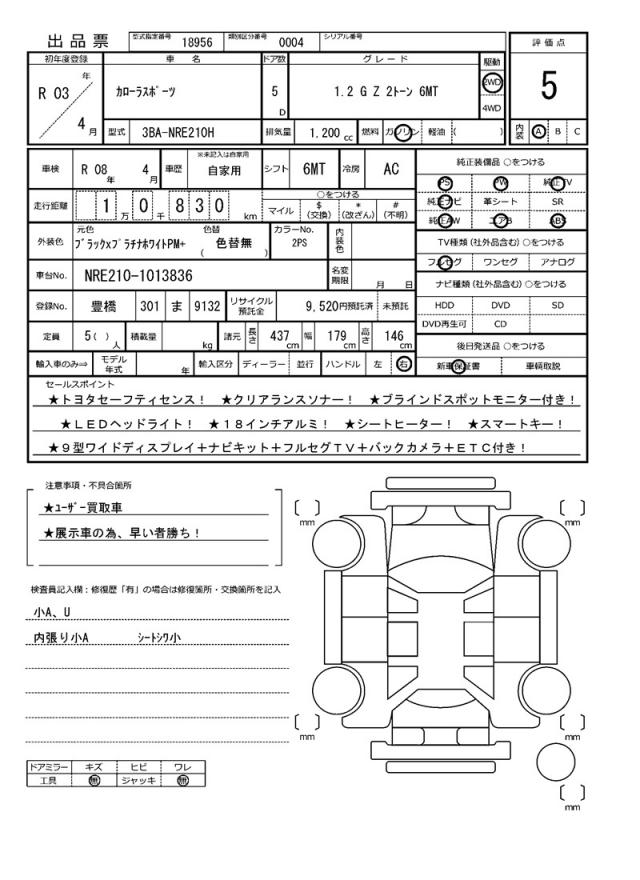 出品票 型式指定番号 18956 類別区分番号 0004 シリアル番号
初年度登録 車 名 ドア数 グレード 駆動 評価点
R 03 年 4 月 カローラスポーツ 5 D 1.2 G Z 2トーン 6MT 2WD 4WD 5
型式 3BA-NRE210H 排気量 1.200 cc 燃料 ガソリン 軽油 ( ) 内装 A B C
車検 R 08 年 4 月 車歴 ※未記入は自家用 自家用 シフト 6MT 冷房 AC
走行距離 1 万 0 千 8 3 0 km ○をつける マイル $ (交換) * (改ざん) # (不明)
外装色 元色 ブラックxプラチナホワイトPM+ 色替 ( 色替無 ) カラーNo. 2PS 内装色
車台No. NRE210-1013836 名変期限 月 日
登録No. 豊橋 301 ま 9132 リサイクル預託金 9,520円預託済 未預託
定員 5( ) 人 積載量 kg 諸元 長さ 437 cm 幅 179 cm 高さ 146 cm
輸入車のみ⇒ モデル年式 年 輸入区分 ディーラー 並行 ハンドル 左 右
純正装備品 ○をつける
PS PW 純正TV
純正ナビ 革シート SR
純正AW エアB ABS
TV種類 (社外品含む) ○をつける
フルセグ ワンセグ アナログ
ナビ種類 (社外品含む) ○をつける
HDD DVD SD
DVD再生可 CD
後日発送品 ○をつける
新車保証書 車輌取説
セールスポイント
★トヨタセーフティセンス！ ★クリアランスソナー！ ★ブラインドスポットモニター付き！
★ＬＥＤヘッドライト！ ★１８インチアルミ！ ★シートヒーター！ ★スマートキー！
★９型ワイドディスプレイ＋ナビキット＋フルセグＴＶ＋バックカメラ＋ＥＴＣ付き！
注意事項・不具合箇所
★ﾕｰｻﾞｰ買取車
★展示車の為、早い者勝ち！
検査員記入欄：修復歴「有」の場合は修復箇所・交換箇所を記入
小A、U
内張り小A ｼｰﾄｼﾜ小
ドアミラー キズ ヒビ ワレ
工具 無 ジャッキ 無
[ ] mm
[ ] mm
[ ] mm
[ ] mm
[ ] mm